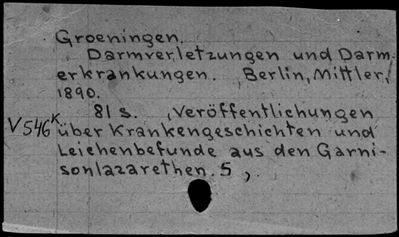 Groeningen.
Darmverletzungen und Darm-
erkrankungen. Berlin, Mittler,
1890.
81 s. (Veröffentlichungen
V546K. über Krankengeschichten und
Leichenbefunde aus den Garni-
sonlazarethen. 5).